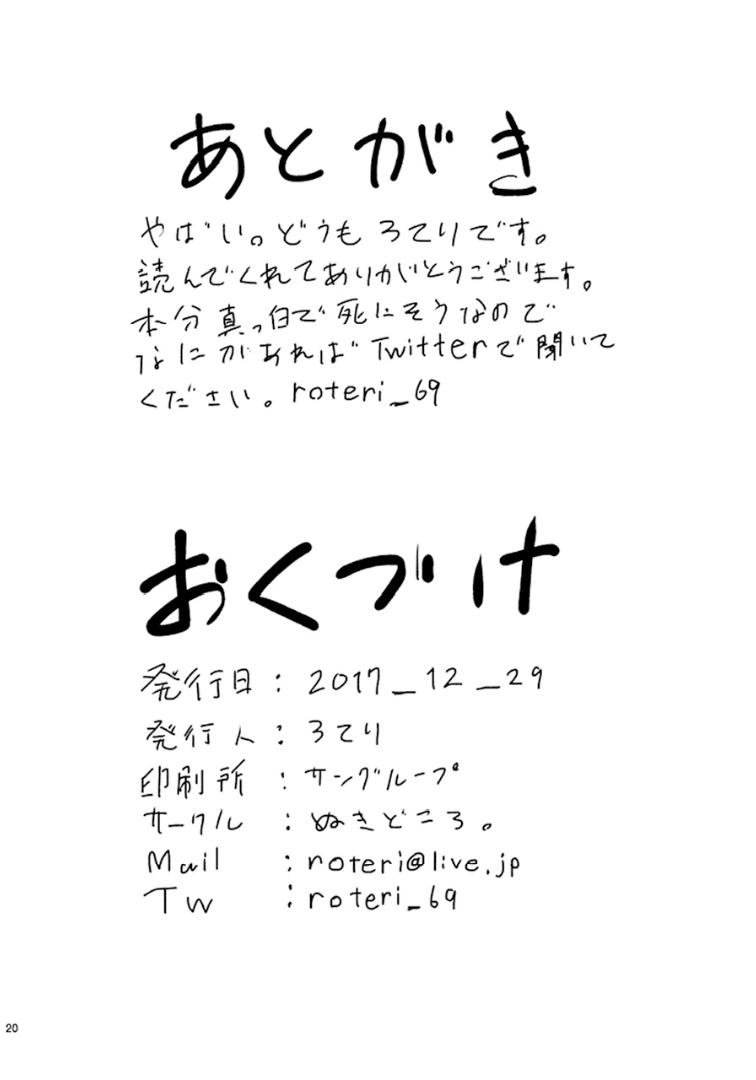 あとがき
やばい。どうも ろてりです。
読んでくれてありがとうございます。
本分真っ白で死にそうなので
なにかあれば Twitterで聞いて
ください。roteri_69
おくづけ
発行日 : 2017_12_29
発行人 : ろてり
印刷所 : サングループ
サークル : ぬきどころ。
Mail : roteri@live.jp
Tw : roteri_69
20